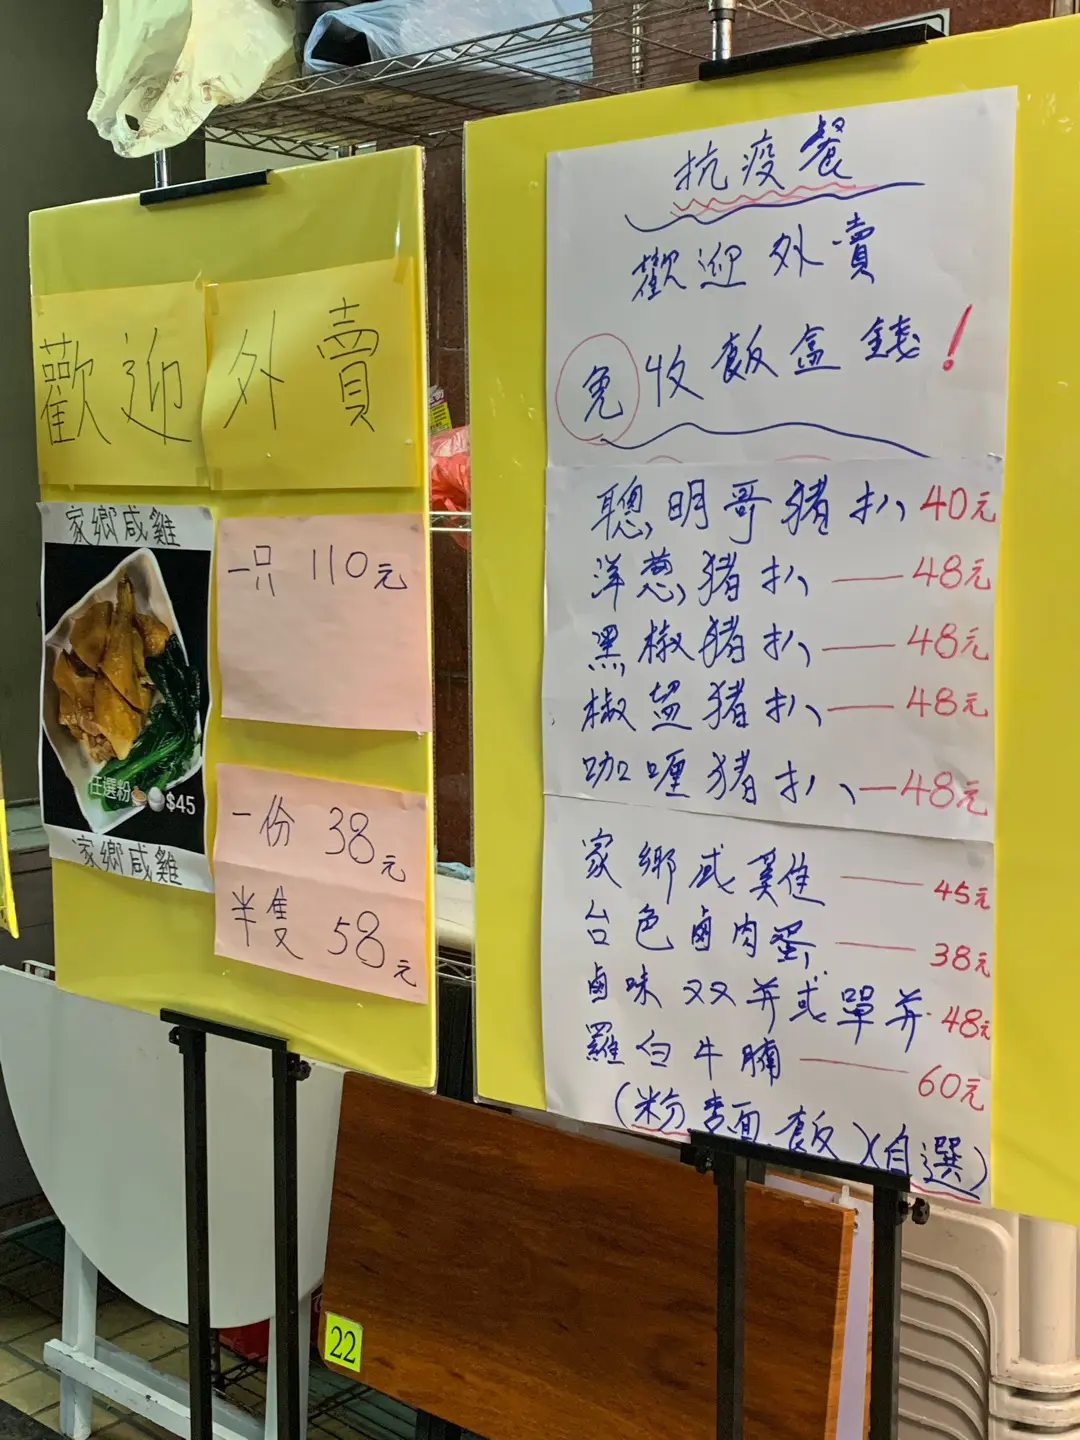 歡迎外賣
家鄉咸雞
任選粉 $45
家鄉咸雞
一只 110元
一份 38元
半隻 58元
抗疫餐
歡迎外賣
免收飯盒錢!
聰明哥豬扒 40元
洋葱豬扒——48元
黑椒豬扒——48元
椒盐豬扒——48元
咖喱豬扒——48元
家鄉咸雞——45元
台色鹵肉蛋——38元
鹵味双并或單并·48元
羅白牛腩——60元
(粉.麵.飯)(自選)
22